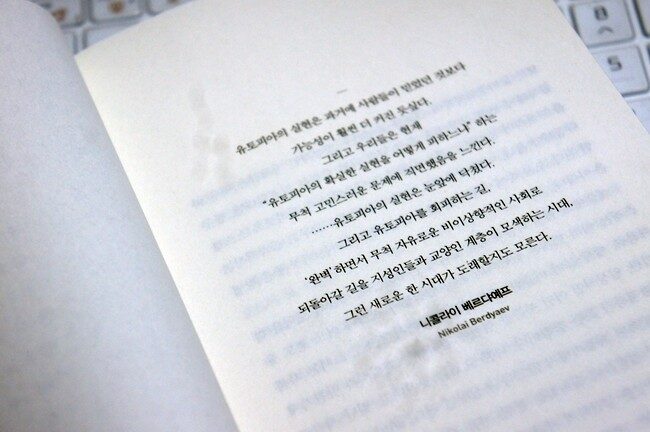 유토피아의 실현은 과거에 사람들이 믿었던 것보다
가능성이 훨씬 더 커진 듯싶다.
그리고 우리들은 현재
“유토피아의 확실한 실현을 어떻게 피하느냐” 하는
무척 고민스러운 문제에 직면했음을 느낀다.
……유토피아의 실현은 눈앞에 닥쳤다.
그리고 유토피아를 회피하는 길,
‘완벽’하면서 무척 자유로운 비이상향적인 사회로
되돌아갈 길을 지성인들과 교양인 계층이 모색하는 시대,
그런 새로운 한 시대가 도래할지도 모른다.
니콜라이 베르댜예프
Nikolai Berdyaev